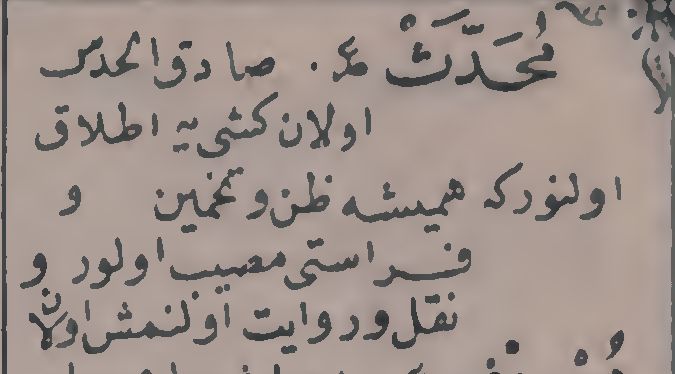 مُحَدَّثْ ع. صادق الحدس
اولان كشی یه اطلاق
اولنور كه همیشه ظن و تخمین و
فراستی مصیب اولور و
نقل و روایت اولنمش اولان